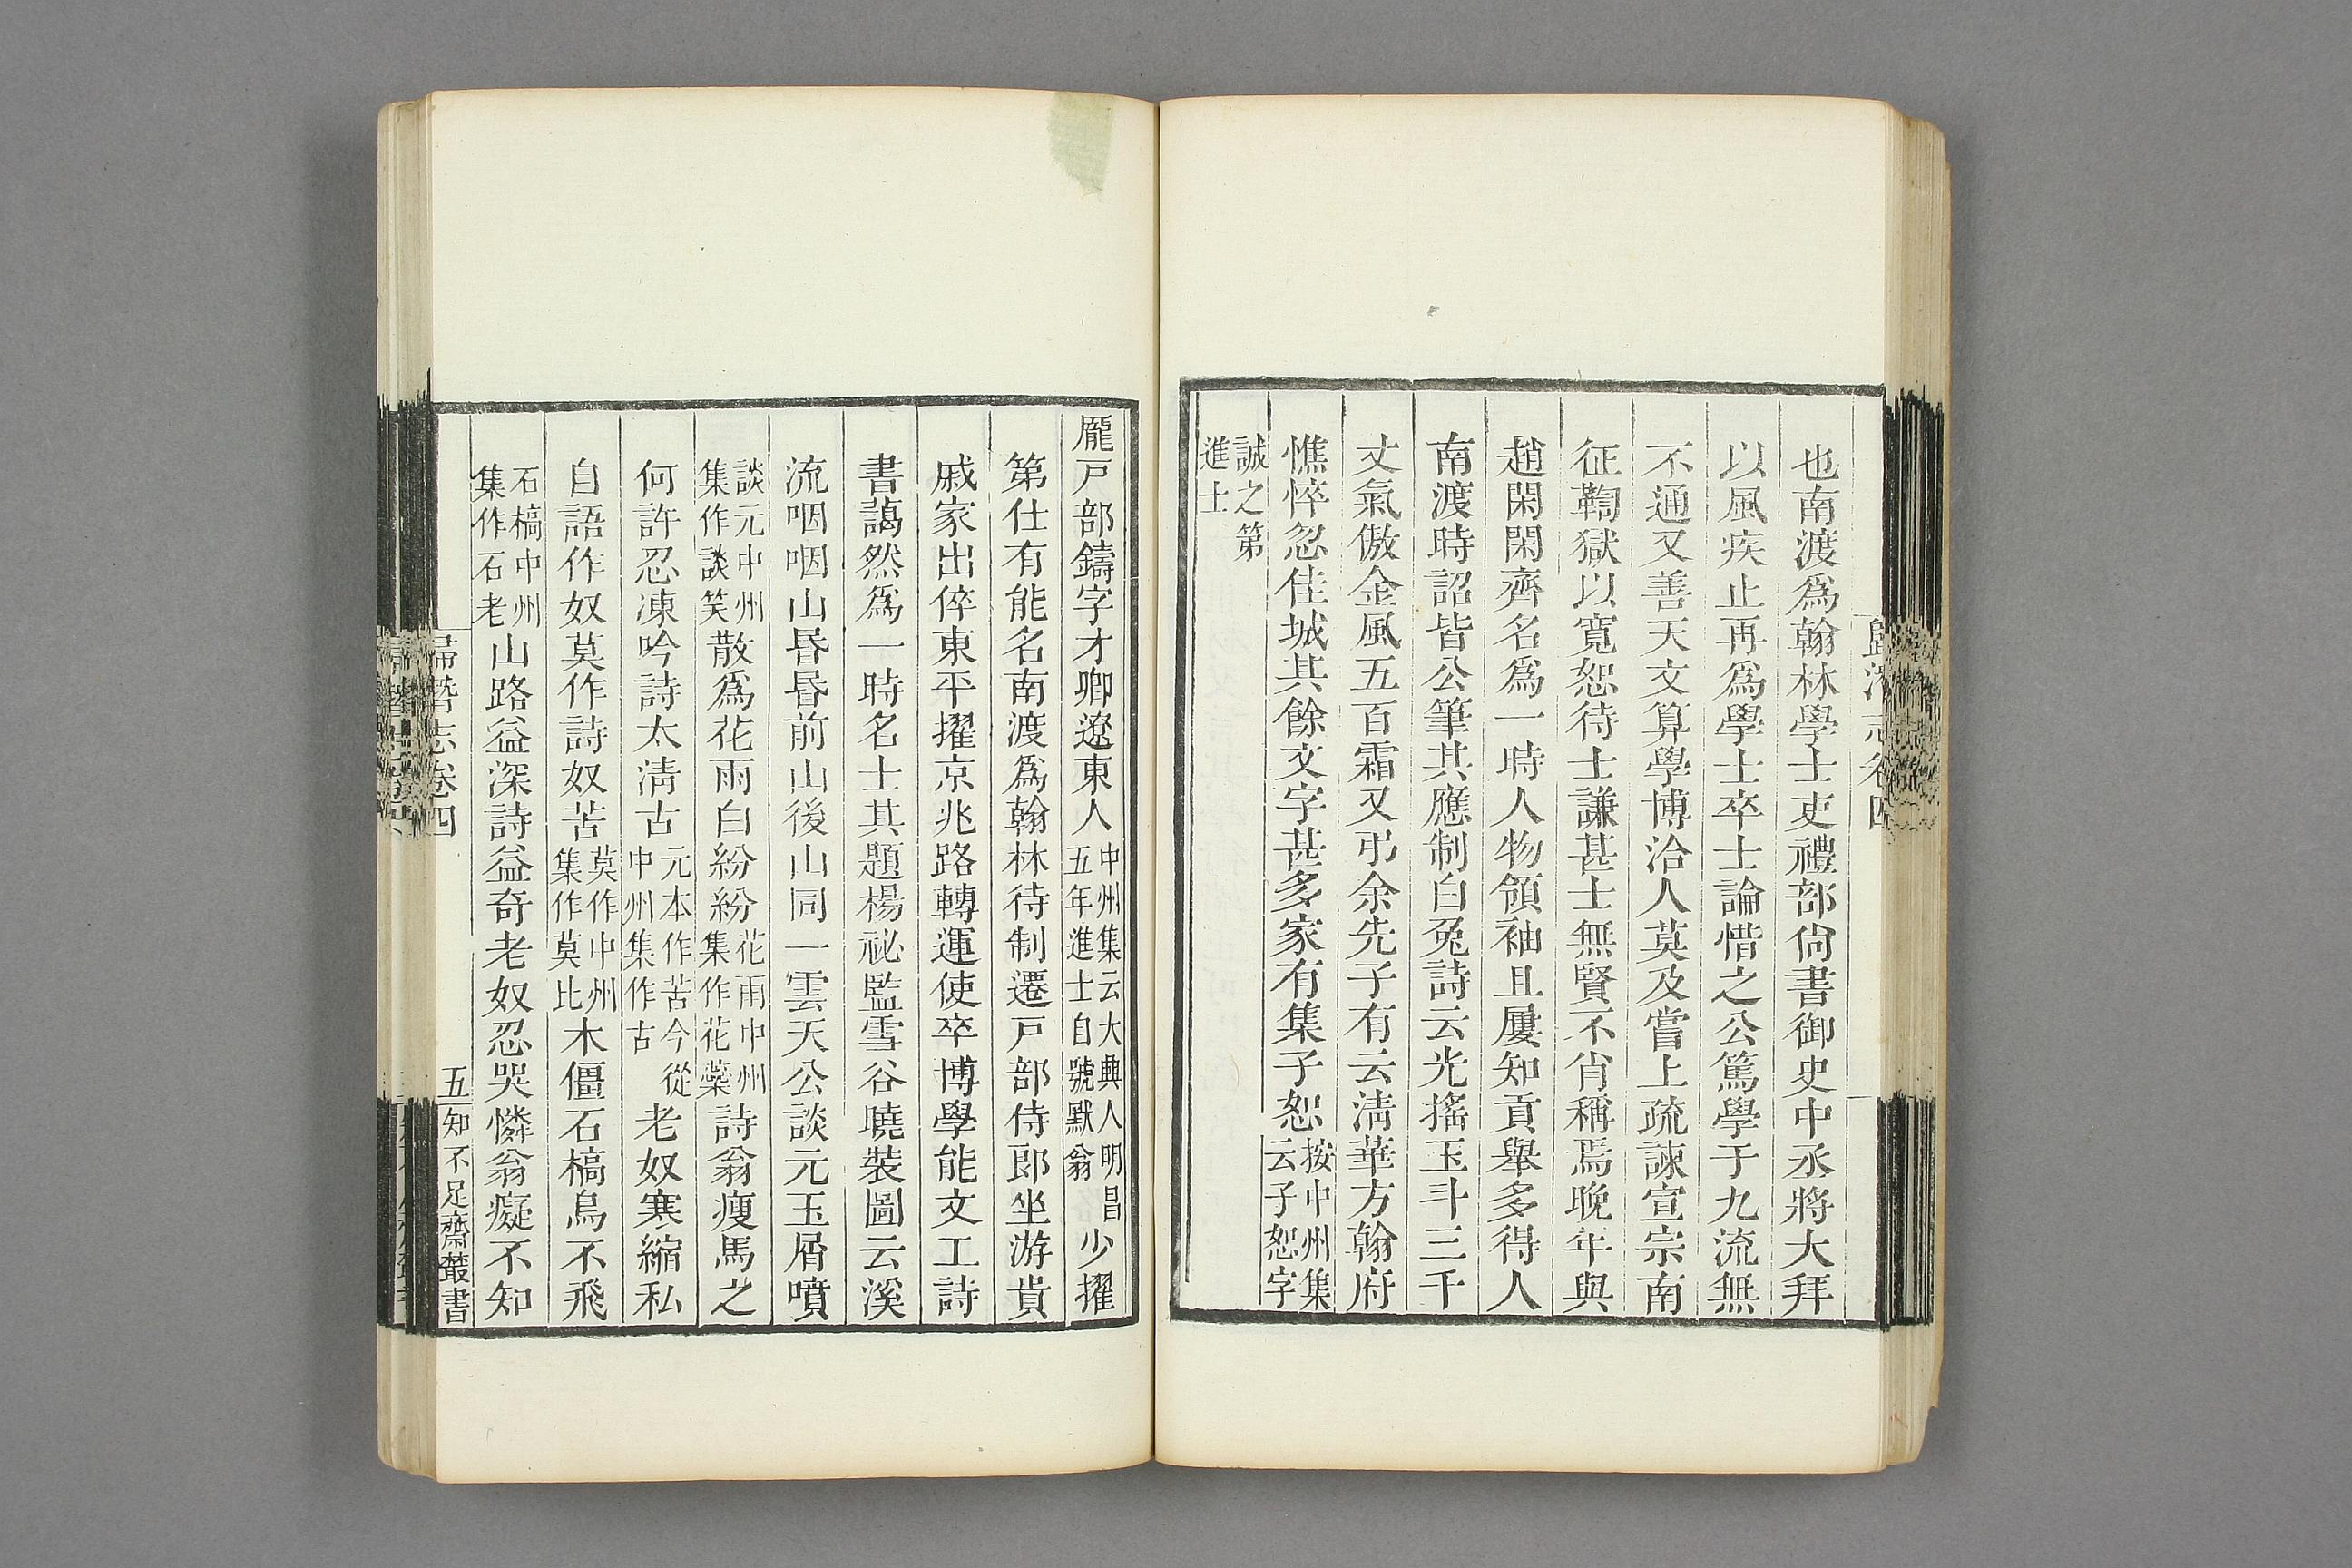 也南渡爲翰林學士吏禮部尙書御史中丞將大拜
以風疾止再爲學士卒士論惜之公篤學于九流無
不通又善天文算學博洽人莫及嘗上疏諫宣宗南
征鞫獄以寬恕待士謙甚士無賢不肖稱焉晩年與
趙閑閑齊名爲一時人物領袖且屢知貢舉多得人
南渡時詔皆公筆其應制白兔詩云光搖玉斗三千
丈氣傲金風五百霜又弔余先子有云淸華方翰府
憔悴忽佳城其餘文字甚多家有集子恕按中州集云子恕字
誠之第進士
龎戸部鑄字才卿遼東人中州集云大興人明昌五年進士自號默翁少擢
第仕有能名南渡爲翰林待制遷戸部侍郞坐游貴
戚家出倅東平擢京兆路轉運使卒博學能文工詩
書藹然爲一時名士其題楊祕監雪谷曉裝圖云溪
流咽咽山昏昏前山後山同一雲天公談元玉屑噴
談元中州集作談笑散爲花雨白紛紛花雨中州集作花蘂詩翁瘦馬之
何許忍凍吟詩太淸古元本作苦今從中州集作古老奴寒縮私
自語作奴莫作詩奴苦莫作中州集作莫比木僵石槁鳥不飛
石槁中州集作石老山路益深詩益奇老奴忍哭憐翁癡不知
歸潛志卷四
五
知不足齋叢書